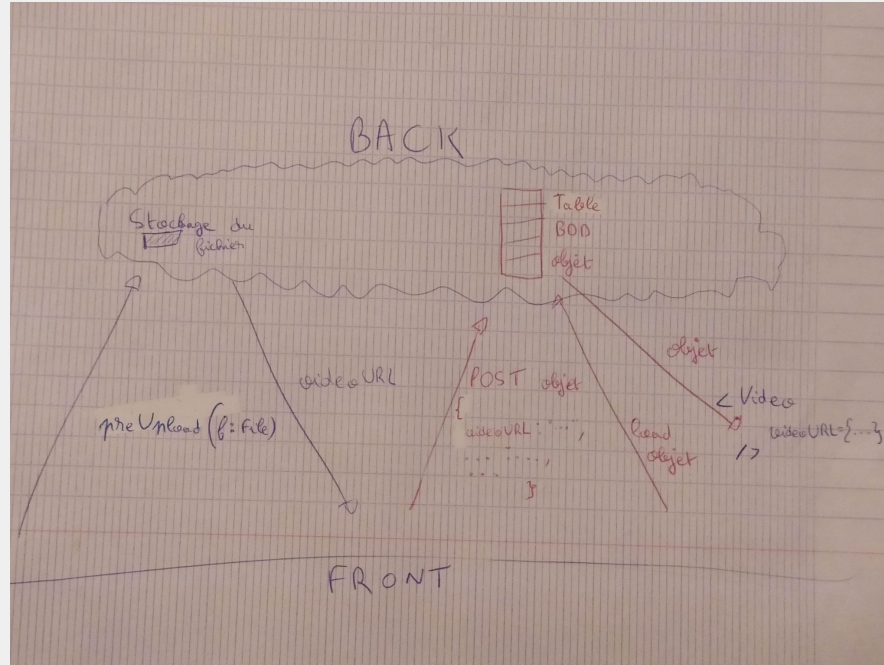 BACK
Stockage du
fichier
Table
BDD
objet
preUpload (f: File)
videoURL
POST objet
{
videoURL: "...",
... ... ,
...
}
load
objet
objet
< Video
videoURL={...}
/>
FRONT